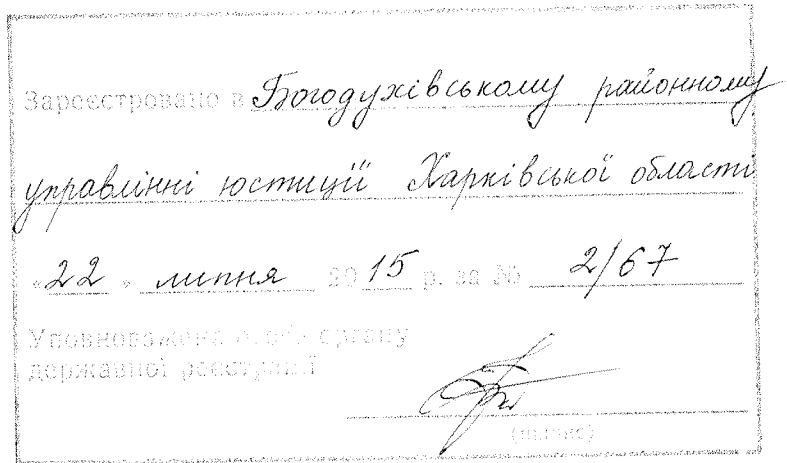 Зареєстровано в Богодухівському районному
управлінні юстиції Харківської області
«22» липня 2015 р. за № 2/67
Уповноважена особа органу
державної реєстрації
(підпис)